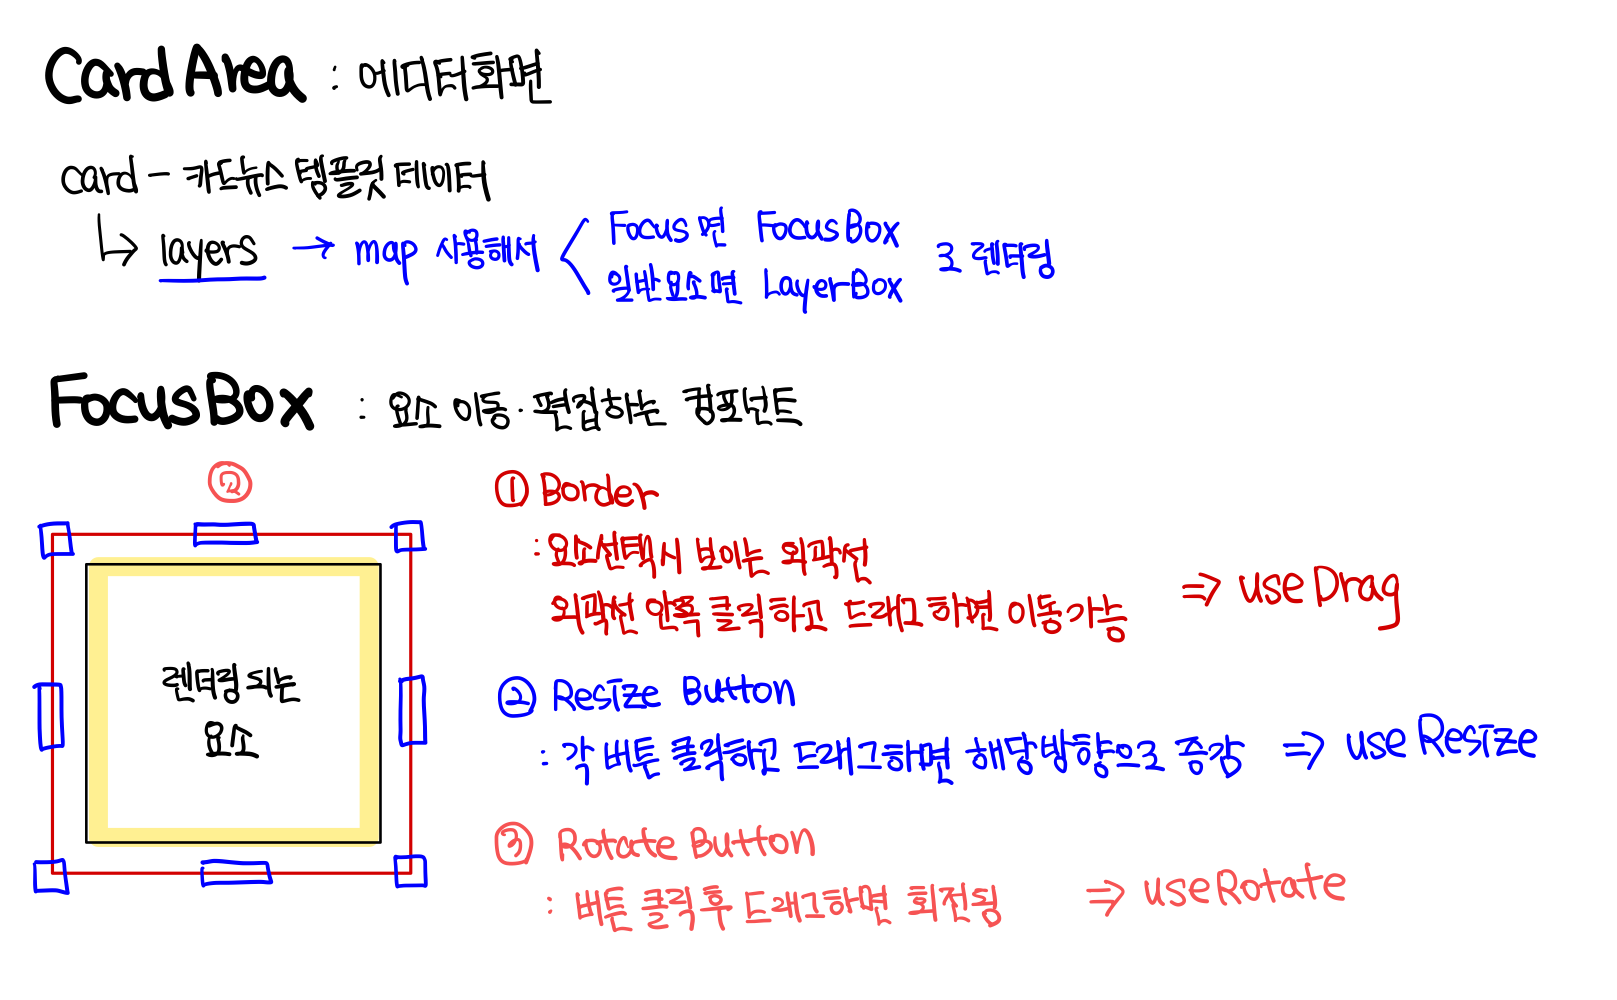 CardArea : 에디터화면
card - 카드뉴스 템플릿 데이터
↳ layers → map 사용해서 < Focus면 FocusBox
일반요소면 LayerBox 로 렌더링
FocusBox : 요소 이동·편집하는 컴포넌트
① Border
: 요소선택시 보이는 외곽선
외곽선 안쪽 클릭하고 드래그하면 이동가능 ⇒ useDrag
렌더링 되는
요소
② Resize Button
: 각 버튼 클릭하고 드래그하면 해당방향으로 증감 ⇒ useResize
③ Rotate Button
: 버튼 클릭 후 드래그하면 회전됨 ⇒ useRotate